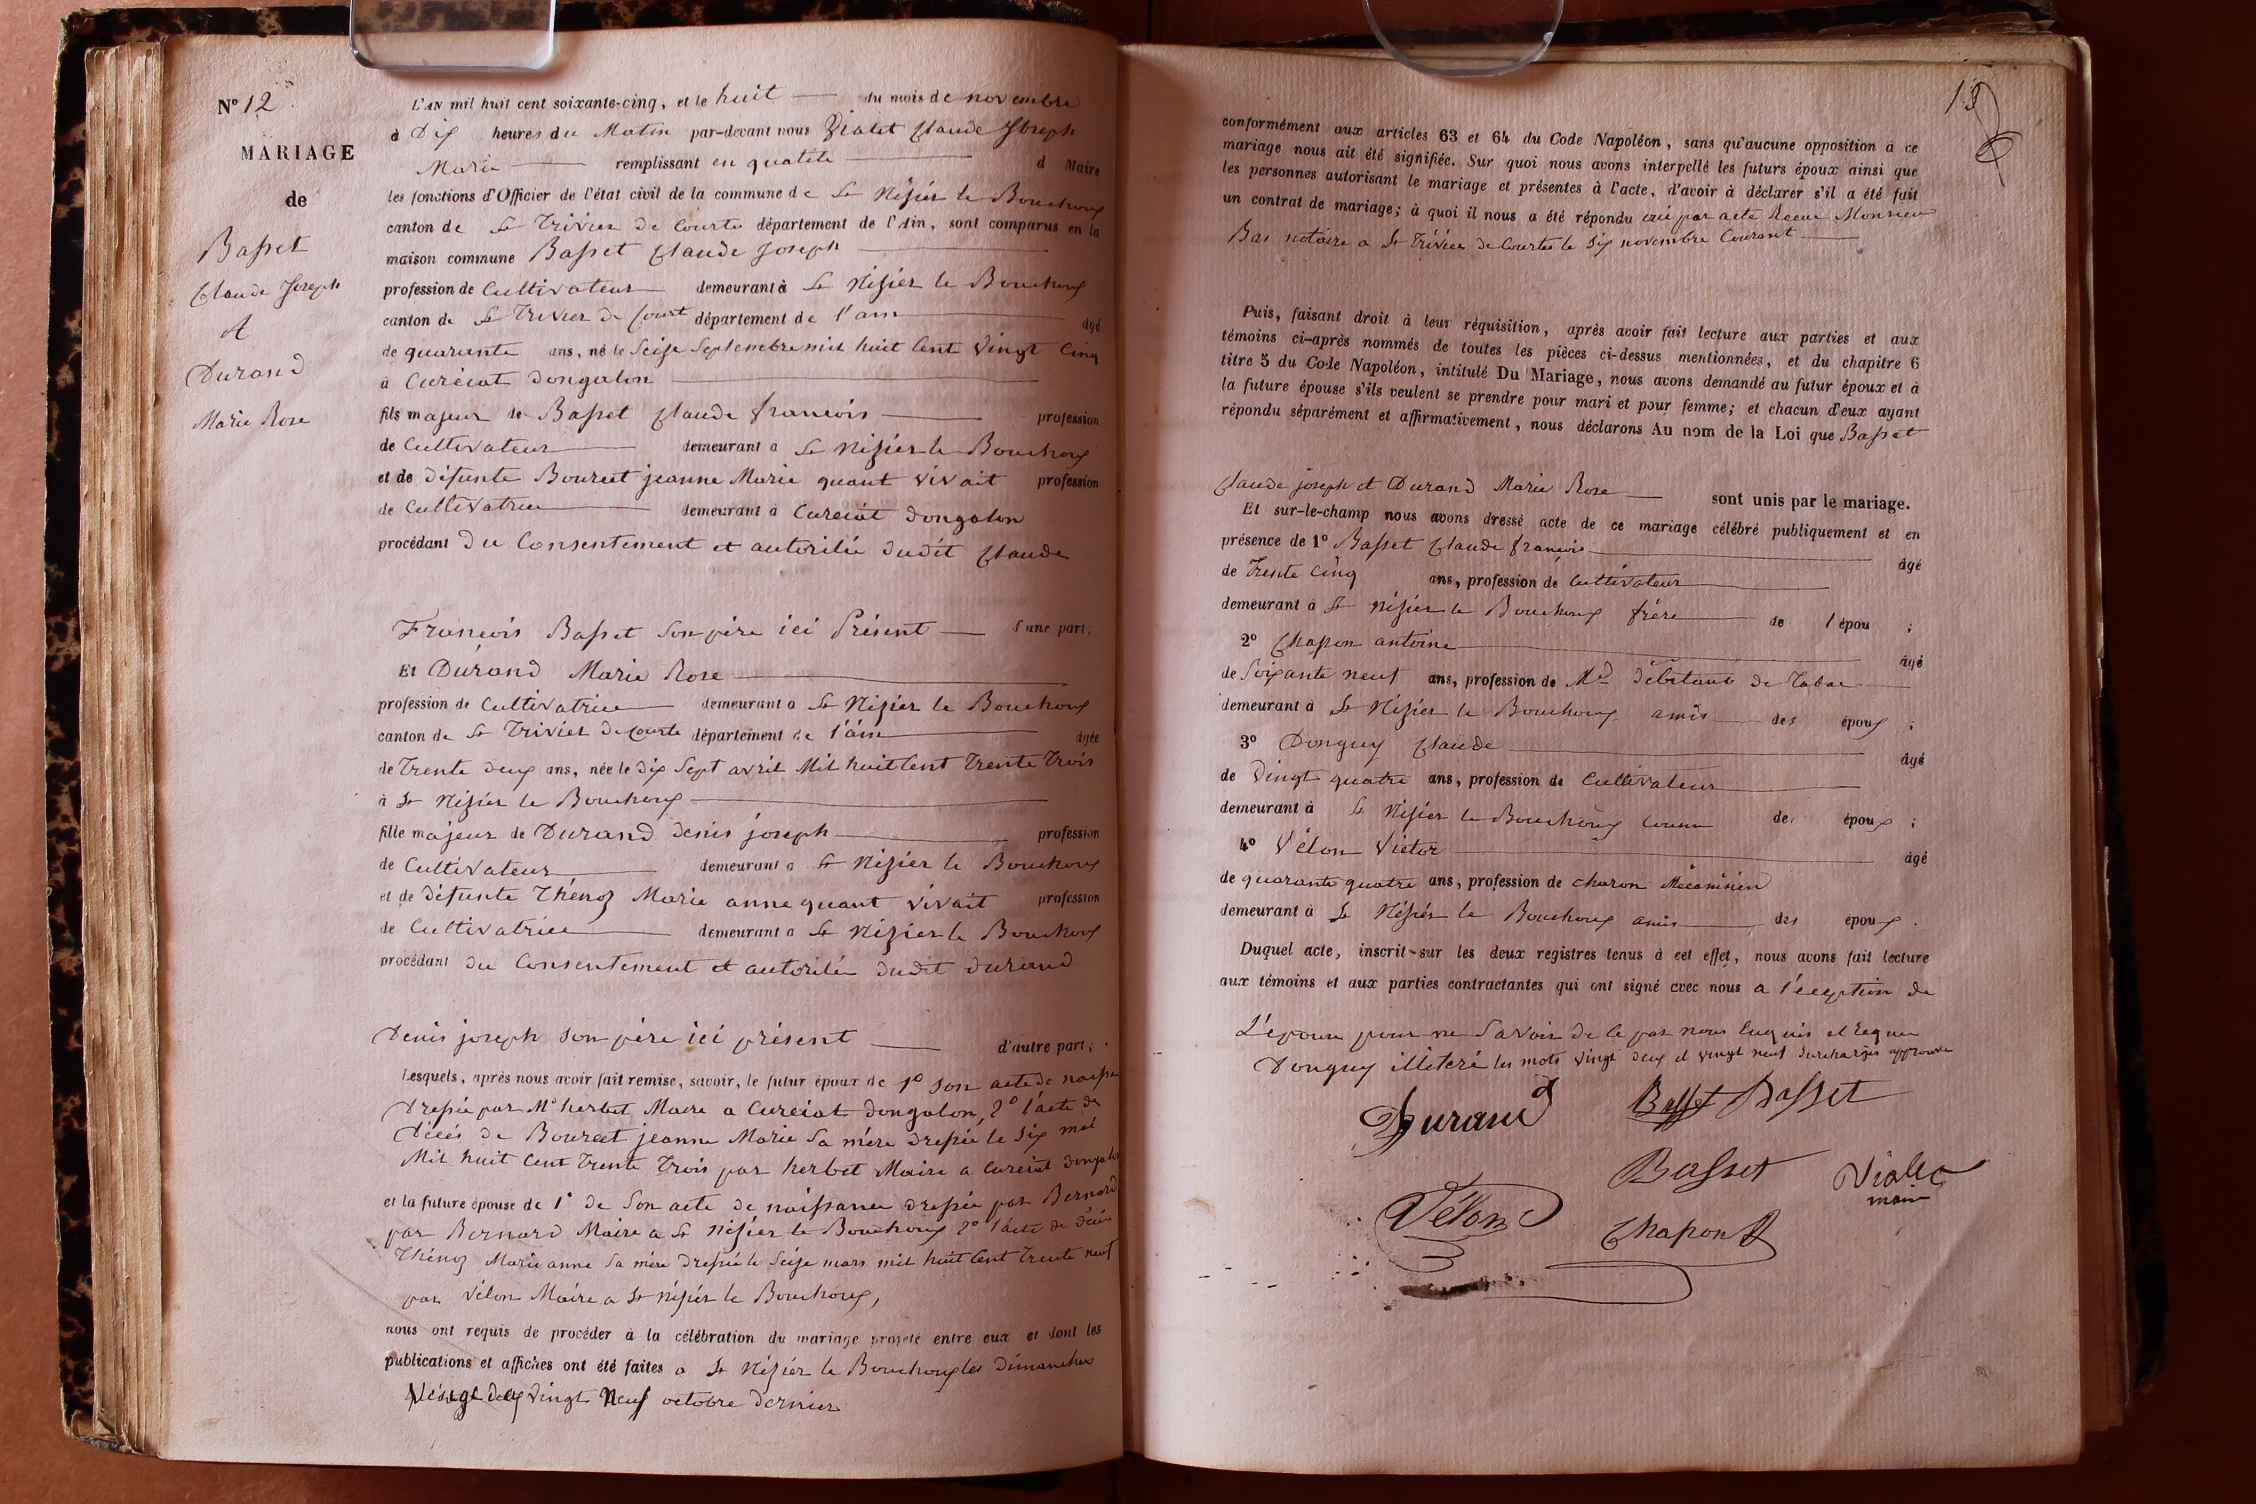 N° 12
MARIAGE
de
Basset
Claude Joseph
et
Durand
Marie Rose
L'AN mil huit cent soixante-cinq, et le huit du mois de novembre
à Dix heures du Matin par-devant nous Vialet Claude Joseph
Marie remplissant en qualité d Maire
les fonctions d'Officier de l'état civil de la commune de St Nizier le Bouchoux
canton de St Trivier de Courte département de l'Ain, sont comparus en la
maison commune Basset Claude Joseph
profession de Cultivateur demeurant à St Nizier le Bouchoux
canton de St Trivier de Court département de l'ain âgé
de quarente ans, né le Seize Septembre mil huit Cent Vingt Cinq
à Curciat dongalon
fils majeur de Basset Claude francois profession
de Cultivateur demeurant a St Nizier le Bouchoux
et de défunte Bourcet jeanne Marie quant vivait profession
de Cultivatrice demeurant à Curciat dongalon
procédant du Consentement et autorilée dudit Claude
Francois Basset Son père ici Présent d'une part;
Et Durand Marie Rose
profession de Cultivatrice demeurant a St Nizier le Bouchoux
canton de St Trivier de Courte département de l'ain âgée
de Trente deux ans, née le dix Sept avril Mil huit Cent Trente Trois
à St Nizier le Bouchoux
fille majeur de Durand denis joseph profession
de Cultivateur demeurant a St Nizier le Bouchoux
et de défunte Thénoz Marie anne quant vivait profession
de Cultivatrice demeurant a St Nizier le Bouchoux
procédant du Consentement et autorilée dudit durand
Denis joseph Son père ici présent d'autre part;
Lesquels, après nous avoir fait remise, savoir, le futur époux de 1° Son acte de naissa
Dressée par Mr herbet Maire a Curciat dongalon, 2° l'acte de
Décés de Bourcet jeanne Marie Sa mére dressée le Six mai
Mil huit Cent Trente Trois par herbet Maire a Curciat dongalon
et la future épouse de 1° de Son acte de naissance dressée par Bernard
par Bernard Maire a St Nizier le Bouchoux 2° l'acte de décés
Thénoz Marie anne Sa mére dressée le Seize mars mil huit Cent Trente neuf
par Vélon Maire a St Nizier le Bouchoux,
nous ont requis de procéder à la célébration du mariage projeté entre eux et dont les
publications et affiches ont été faites a St Nizier le Bouchoux les dimanches
Vingt deux Vingt Neuf octobre dernier
13
conformément aux articles 63 et 64 du Code Napoléon, sans qu'aucune opposition à ce
mariage nous ait été signifiée. Sur quoi nous avons interpellé les futurs époux ainsi que
les personnes autorisant le mariage et présentes à l'acte, d'avoir à déclarer s'il a été fait
un contrat de mariage; à quoi il nous a été répondu oui par acte Recu Monsieur
Bas notaire a St Trivier de Courtes le Six novembre Courant
Puis, faisant droit à leur réquisition, après avoir fait lecture aux parties et aux
témoins ci-après nommés de toutes les pièces ci-dessus mentionnées, et du chapitre 6
titre 5 du Code Napoléon, intitulé Du Mariage, nous avons demandé au futur époux et à
la future épouse s'ils veulent se prendre pour mari et pour femme; et chacun d'eux ayant
répondu séparément et affirmativement, nous déclarons Au nom de la Loi que Basset
Claude joseph et Durand Marie Rose sont unis par le mariage.
Et sur-le-champ nous avons dressé acte de ce mariage célébré publiquement et en
présence de 1° Basset Claude francois âgé
de Trente Cinq ans, profession de Cultivateur
demeurant à St Nizier le Bouchoux frére de l'épou ;
2° Chapon antoine âgé
de Soixante neuf ans, profession de Md débitant de Tabac
demeurant à St Nizier le Bouchoux amis des époux ;
3° Donguy Claude âgé
de Vingt quatre ans, profession de Cultivateur
demeurant à St Nizier le Bouchoux cousin des époux ;
4° Vélon Victor âgé
de quarante quatre ans, profession de charon Mécanisien
demeurant à St Nizier le Bouchoux amis des epoux .
Duquel acte, inscrit sur les deux registres tenus à cet effet, nous avons fait lecture
aux témoins et aux parties contractantes qui ont signé avec nous a l'éception de
L'epouse pour ne Savoir de le par nous Enquis et Requi
Donguy illiteré les mots vingt deux et vingt neuf surchargés approuvé
Durand
Basset Basset
Basset
Vialet
maire
Vélon
Chapon A